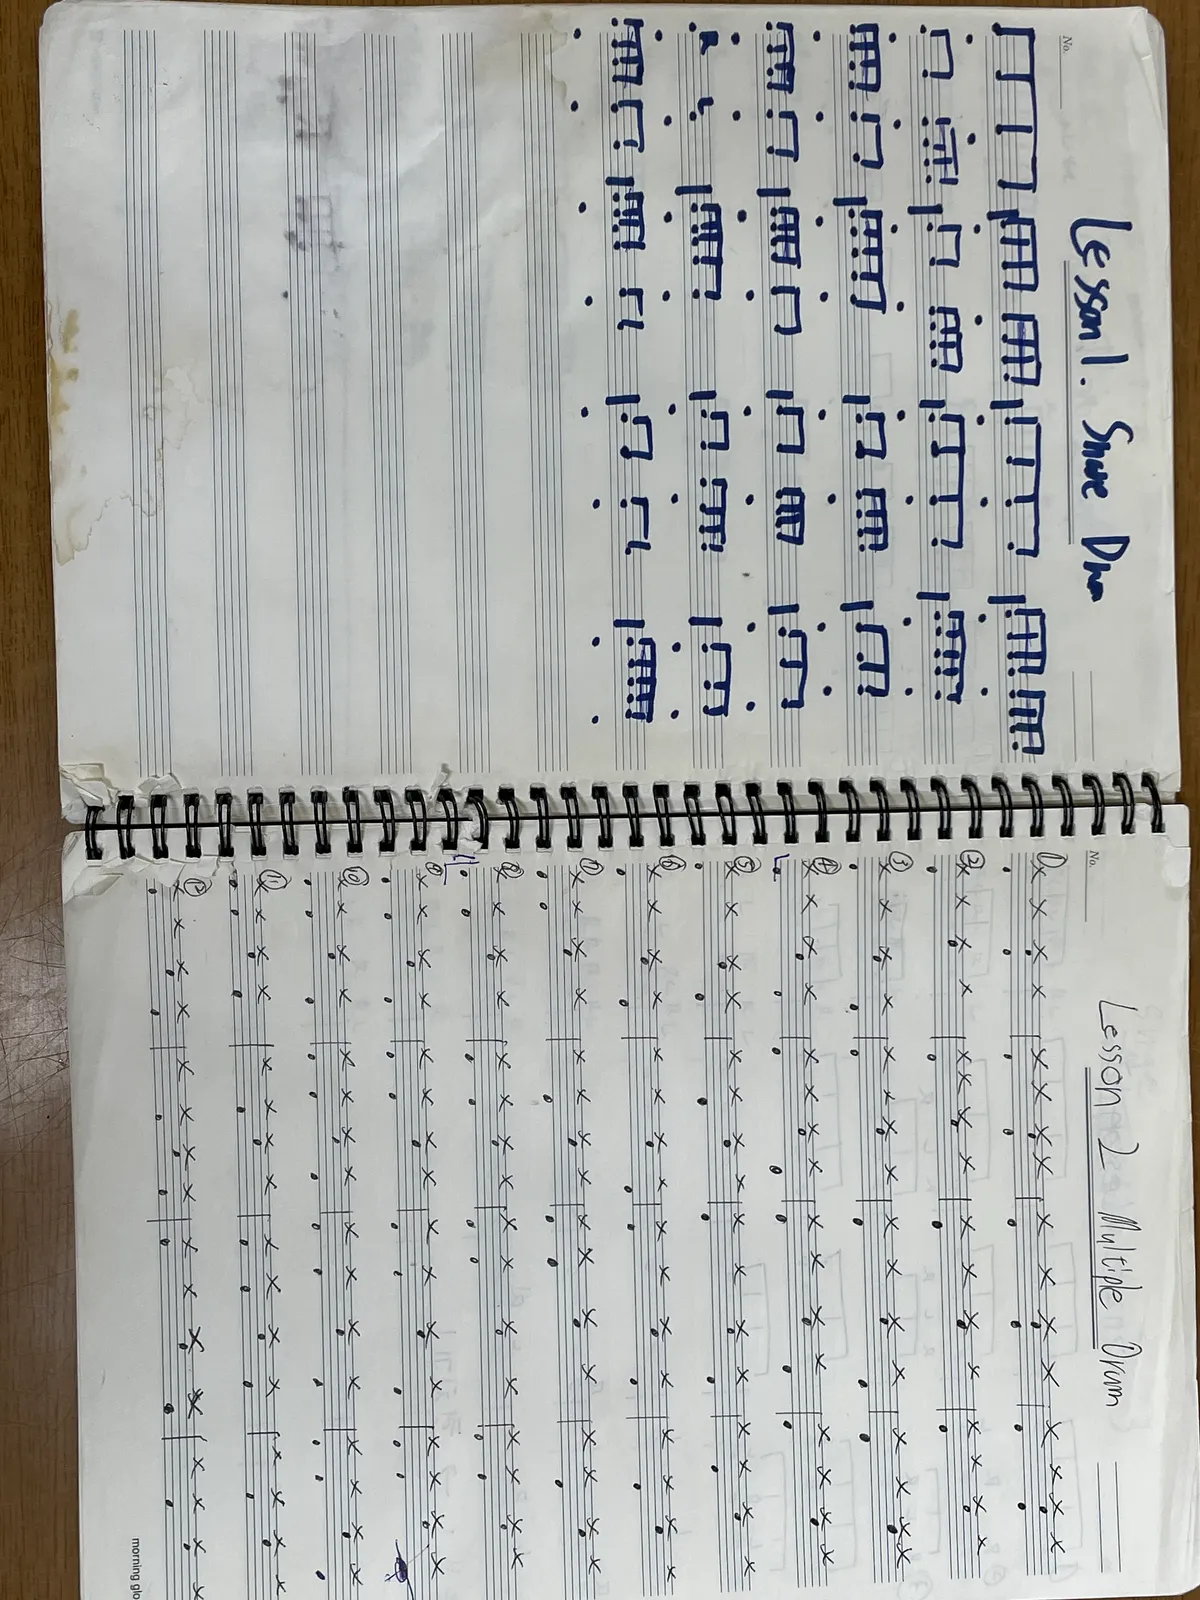 No.
Lesson 1. Snare Drum
No.
Lesson 2 Multiple Drum
①
②
③
④
⑤
⑥
⑦
⑧
⑨
⑩
⑪
⑫
morning glo